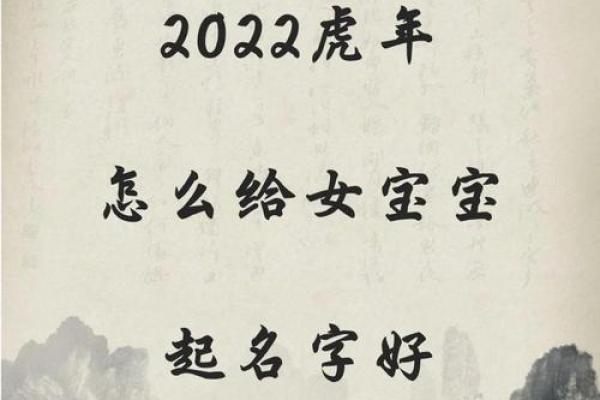 2022虎年
怎么给女宝宝
起名字好